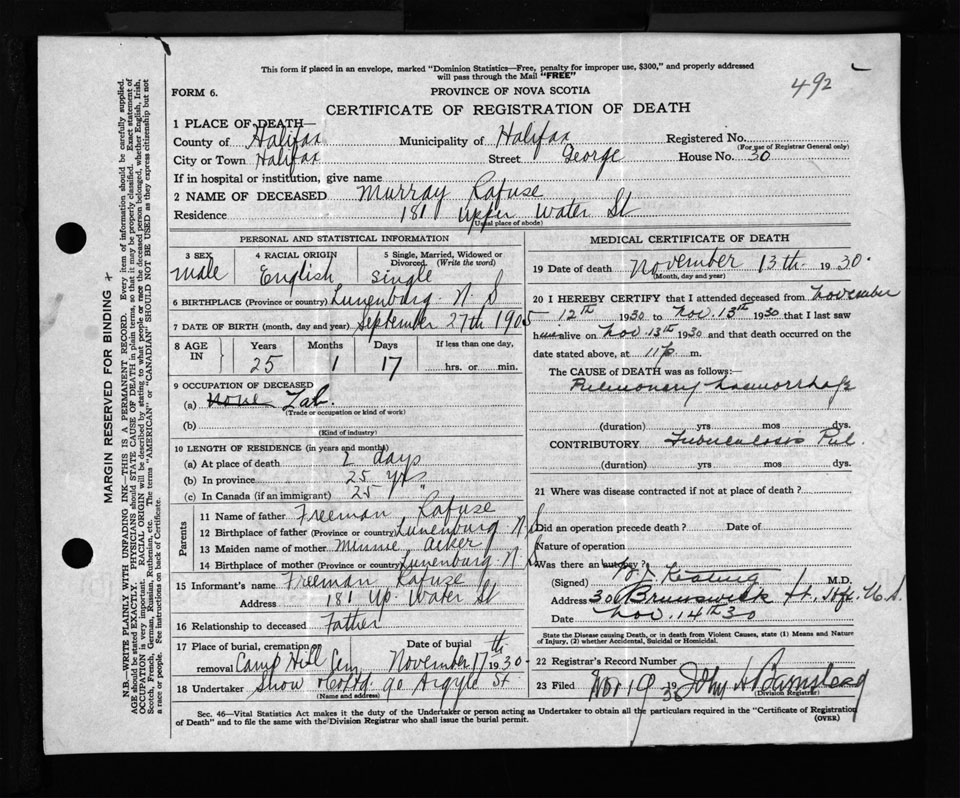 This form if placed in an envelope, marked "Dominion Statistics—Free, penalty for improper use, $300," and properly addressed
will pass through the Mail "FREE"
492
FORM 6.
PROVINCE OF NOVA SCOTIA
CERTIFICATE OF REGISTRATION OF DEATH
1 PLACE OF DEATH—
County of Halifax Municipality of Halifax Registered No.
(For use of Registrar General only)
City or Town Halifax Street George House No. 30
If in hospital or institution, give name
2 NAME OF DECEASED Murray Rafuse
Residence 181 Upper Water St
(Usual place of abode)
PERSONAL AND STATISTICAL INFORMATION
3 SEX male
4 RACIAL ORIGIN English
5 Single, Married, Widowed or Divorced. (Write the word) single
6 BIRTHPLACE (Province or country) Lunenburg N. S
7 DATE OF BIRTH (month, day and year) September 27th 1905
8 AGE IN Years 25 Months 1 Days 17 If less than one day, hrs. or min.
9 OCCUPATION OF DECEASED
(a) none Lab.
(Trade or occupation or kind of work)
(b)
(Kind of industry)
10 LENGTH OF RESIDENCE (in years and months)
(a) At place of death 2 days
(b) In province 25 yrs
(c) In Canada (if an immigrant) 25 "
Parents
11 Name of father Freeman Rafuse
12 Birthplace of father (Province or country) Lunenburg N. S
13 Maiden name of mother Minnie Acker
14 Birthplace of mother (Province or country) Lunenburg N. S
15 Informant's name Freeman Rafuse
Address 181 Up. Water St
16 Relationship to deceased Father
17 Place of burial, cremation or removal Camp Hill Cem Date of burial November 17th 1930
18 Undertaker Snow & Co Ltd 90 Argyle St
(Name and address)
MEDICAL CERTIFICATE OF DEATH
19 Date of death November 13th 1930.
(Month, day and year)
20 I HEREBY CERTIFY that I attended deceased from November
12th 1930 to Nov. 13th 1930 that I last saw
him alive on Nov 13th 1930 and that death occurred on the
date stated above, at 11 p. m.
The CAUSE of DEATH was as follows:—
Pulmonary haemorrhage
(duration) yrs mos dys.
CONTRIBUTORY Tuberculosis Pul.
(duration) yrs mos dys.
21 Where was disease contracted if not at place of death?
Did an operation precede death? Date of
Nature of operation
Was there an autopsy?
(Signed) M.D.
Address 306 Brunswick St. Hfx N. S.
Date Nov. 14th 30
State the Disease causing Death, or in death from Violent Causes, state (1) Means and Nature
of Injury, (2) whether Accidental, Suicidal or Homicidal.
22 Registrar's Record Number
23 Filed Nov 19 19 John H Barnstead
(Division Registrar)
Sec. 46—Vital Statistics Act makes it the duty of the Undertaker or person acting as Undertaker to obtain all the particulars required in the "Certificate of Registration
of Death" and to file the same with the Division Registrar who shall issue the burial permit.
(OVER)
MARGIN RESERVED FOR BINDING
N.B.—WRITE PLAINLY WITH UNFADING INK—THIS IS A PERMANENT RECORD. Every item of information should be carefully supplied.
AGE should be stated EXACTLY. PHYSICIANS should STATE CAUSE OF DEATH in plain terms, so that it may be properly classified. Exact statement of
OCCUPATION is very important. RACIAL ORIGIN will be described by stating to what people or race the deceased person belonged, whether English, Irish,
Scotch, French, German, Russian, Ruthenian, etc. The terms "AMERICAN" or "CANADIAN" SHOULD NOT BE USED as they express citizenship but not
a race or people. See instructions on back of Certificate.